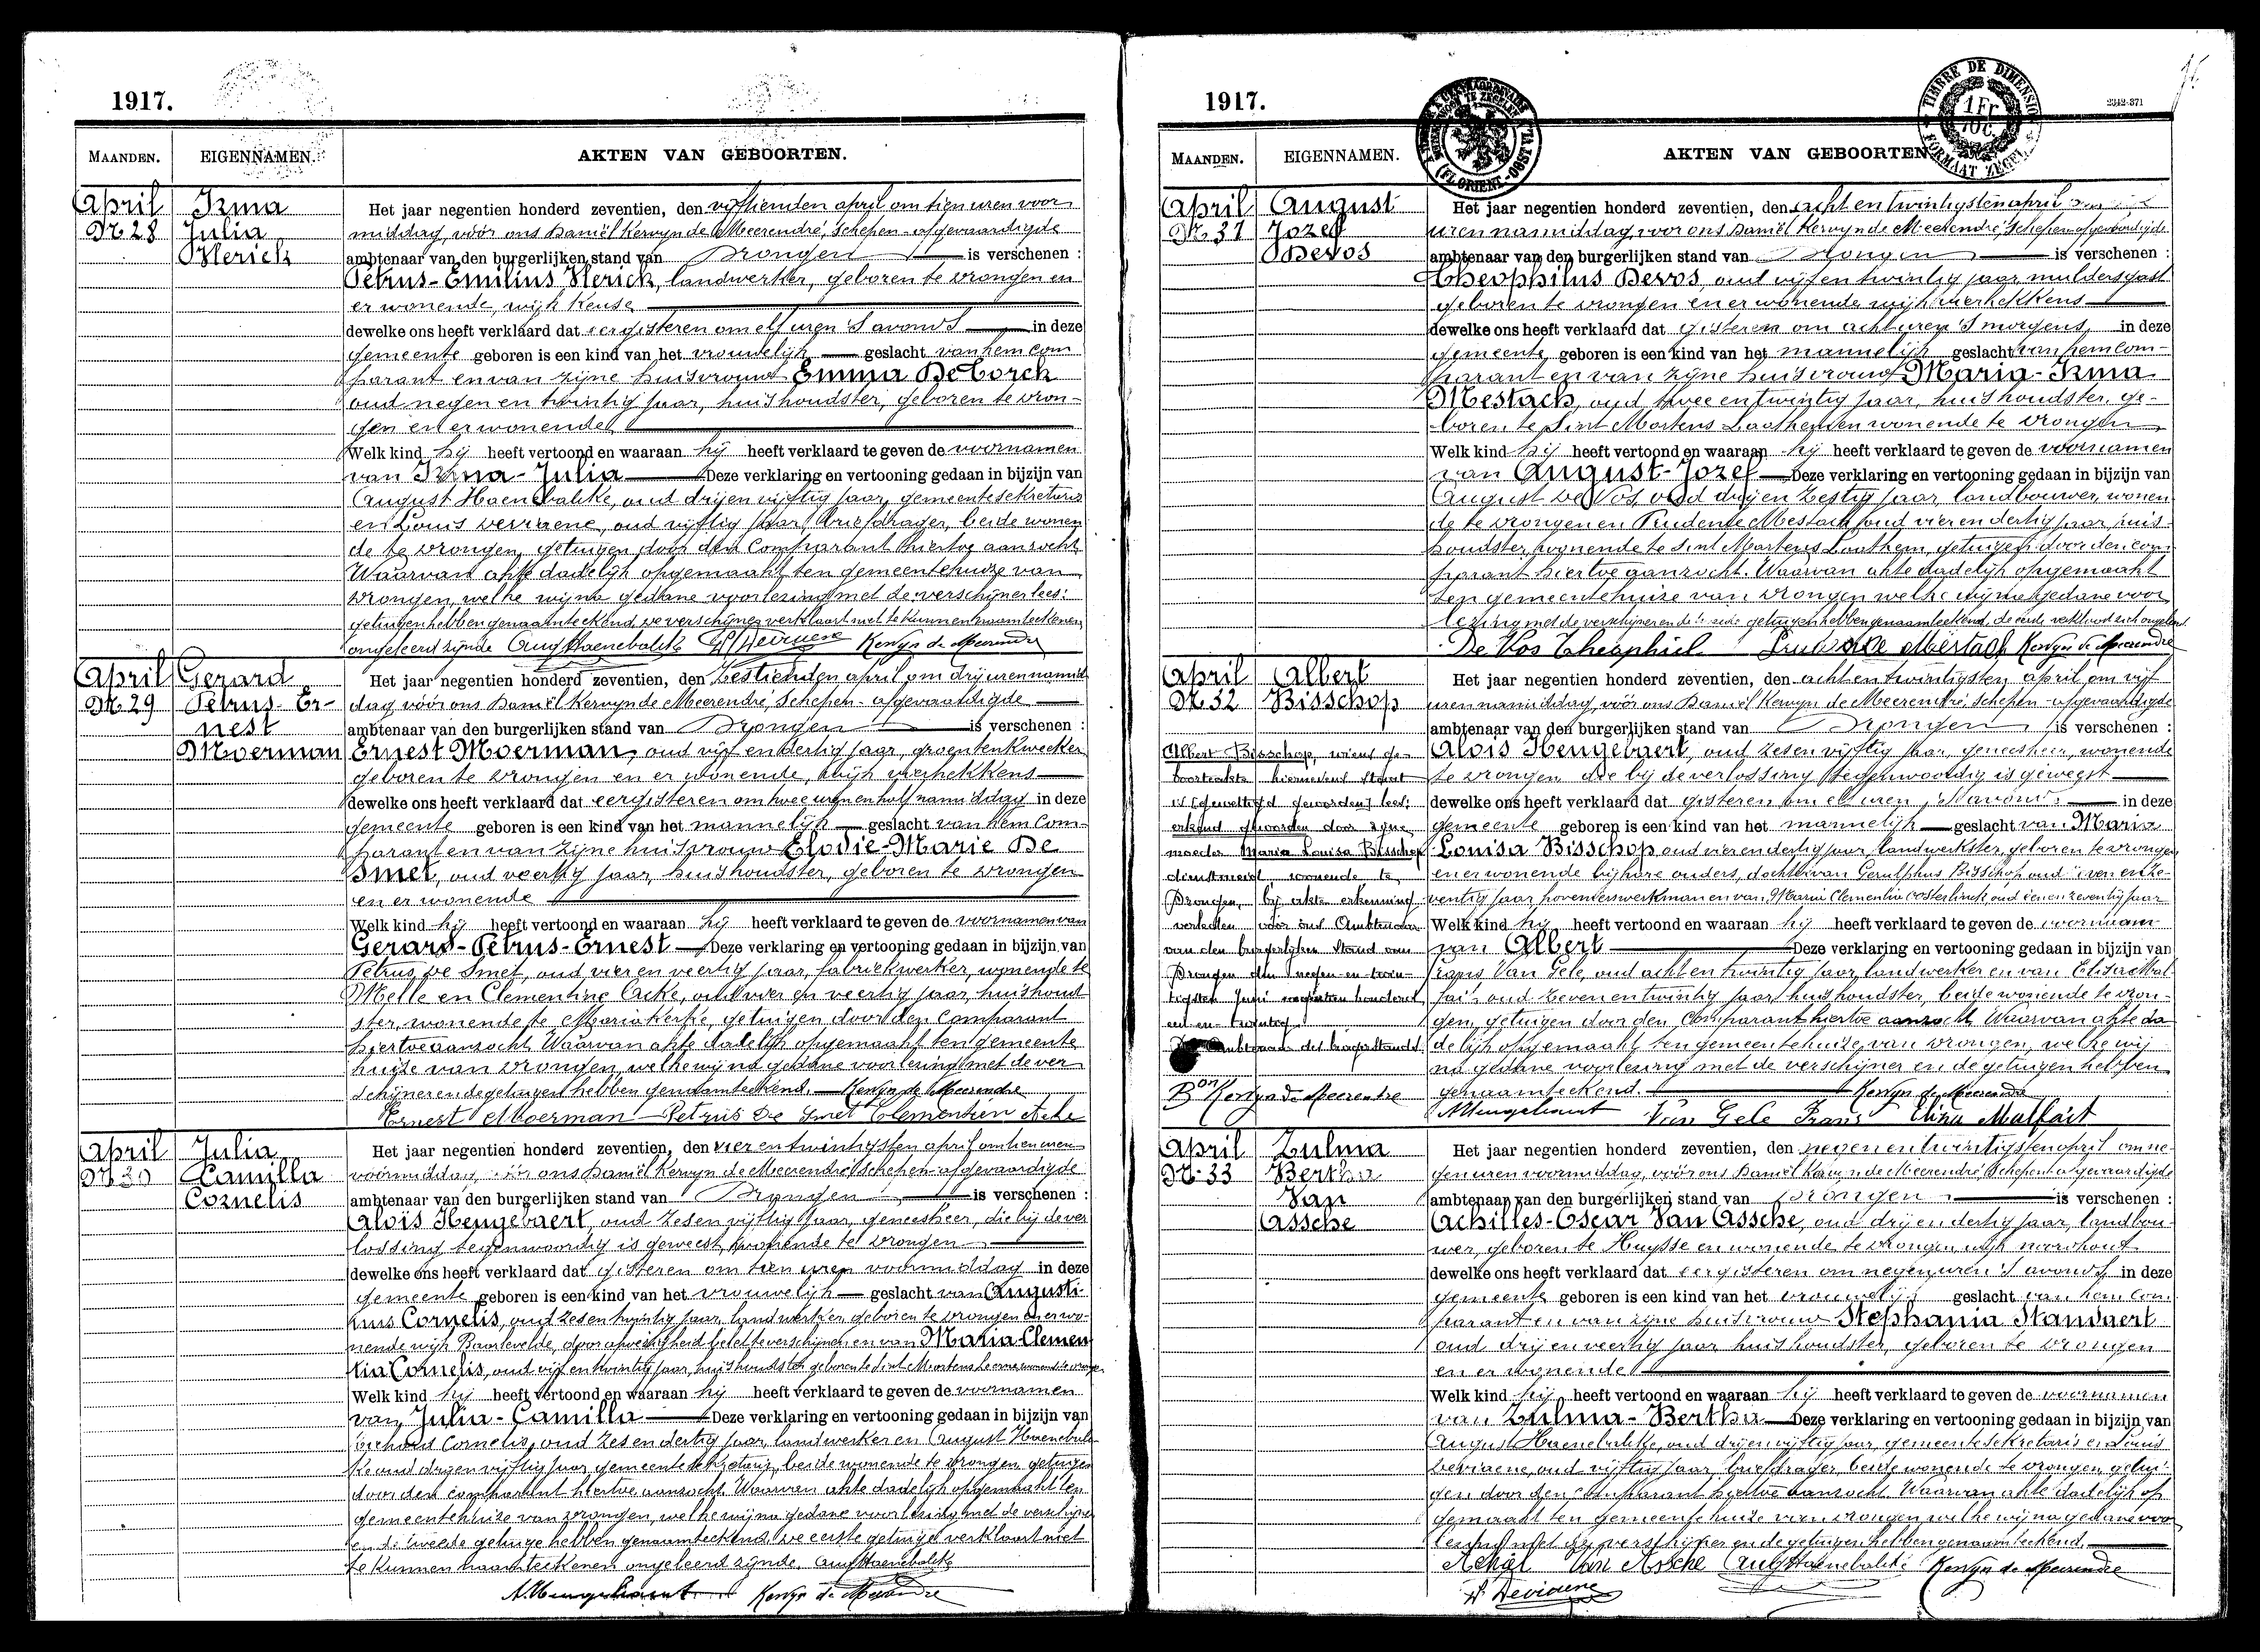 1917.
MAANDEN. EIGENNAMEN. AKTEN VAN GEBOORTEN.
April Irma Het jaar negentien honderd zeventien, den vijftienden april om tien uren voor
Nr 28 Julia middag, vóór ons Daniël Kervyn de Meerendré, Schepen-afgevaardigde
Sterick ambtenaar van den burgerlijken stand van Drongen is verschenen :
Petrus-Emilius Sterick, landwerker, geboren te Drongen en
er wonende, wijk Keuse
dewelke ons heeft verklaard dat eergisteren om elf uren 's avonds in deze
gemeente geboren is een kind van het vrouwelijk geslacht van hem com
parant en van zijne huisvrouw Emma De Corck
oud negen en twintig jaar, huishoudster, geboren te Dron-
gen en er wonende
Welk kind hij heeft vertoond en waaraan hij heeft verklaard te geven de voornamen
van Irma-Julia Deze verklaring en vertooning gedaan in bijzijn van
August Haenebalcke, oud drij en vijftig jaar, gemeentesekretaris
en Louis Deviaene, oud vijftig jaar, briefdrager, beide wonen
de te Drongen, getuigen door den Comparant hiertoe aanzocht
Waarvan akte dadelijk opgemaakt ten gemeentehuize van
Drongen, welke wij na gedane voorlezing met de
getuigen hebben genaamteekend, de verschijner verklaart niet te kunnen naamteekenen
ongeleerd zijnde Aug Haenebalcke Deviaene Kervyn de Meerendre
April Gerard Het jaar negentien honderd zeventien, den zestienden april om drij uren namid
Nr 29 Petrus-Er- dag vóór ons Daniël Kervyn de Meerendré, Schepen-afgevaardigde
nest ambtenaar van den burgerlijken stand van Drongen is verschenen :
Moerman Ernest Moerman, oud vijf en dertig jaar, groentenkweeker
geboren te Drongen en er wonende, wijk Merhekkens
dewelke ons heeft verklaard dat eergisteren om twee uren en half namiddag in deze
gemeente geboren is een kind van het mannelijk geslacht van hem com-
parant en van zijne huisvrouw Elodie-Marie De
Smet, oud veertig jaar, huishoudster, geboren te Drongen
en er wonende
Welk kind hij heeft vertoond en waaraan hij heeft verklaard te geven de voornamen van
Gerard-Petrus-Ernest Deze verklaring en vertooning gedaan in bijzijn van
Petrus De Smet, oud vier en veertig jaar, fabriekwerker, wonende te
Melle en Clementine Acke, oud vier en veertig jaar, huishoud
ster, wonende te Mariakerke, getuigen door den Comparant
hiertoe aanzocht. Waarvan akte dadelijk opgemaakt ten gemeente
huize van Drongen, welke wij na gedane voorlezing met de ver
schijner en de getuigen hebben genaamteekend. Kervyn de Meerendre
Ernest Moerman Petrus De Smet Clementien Acke
April Julia Het jaar negentien honderd zeventien, den vier en twintigsten april om tien uren
Nr 30 Camilla voormiddag, vóór ons Daniël Kervyn de Meerendré Schepen-afgevaardigde
Cornelis ambtenaar van den burgerlijken stand van Drongen is verschenen :
Aloïs Hengebaert, oud zes en vijftig jaar, geneesheer, die bij de ver
lossing tegenwoordig is geweest, wonende te Drongen
dewelke ons heeft verklaard dat gisteren om tien uren voormiddag in deze
gemeente geboren is een kind van het vrouwelijk geslacht van Augusti-
nus Cornelis, oud zes en twintig jaar, landwerker, geboren te Drongen en er wo-
nende wijk Baarlevelde, door afwezigheid belet te verschijnen en van Maria Clemen
tia Cornelis, oud vijf en twintig jaar, huishoudster geboren te Sint Martens
Welk kind hij heeft vertoond en waaraan hij heeft verklaard te geven de voornamen
van Julia-Camilla Deze verklaring en vertooning gedaan in bijzijn van
Cornelis, oud zes en dertig jaar, landwerker en August Haenebalc
ke oud drij en vijftig jaar gemeentesekretaris, beide wonende te Drongen, getuigen
door den comparant hiertoe aanzocht. Waarvan akte dadelijk opgemaakt ten
gemeentehuize van Drongen, welke wij na gedane voorlezing met de verschijner
en de tweede getuige hebben genaamteekend, de eerste getuige verklaart niet
te kunnen naamteekenen ongeleerd zijnde. Aug Haenebalcke
A. Hengebaert Kervyn de Meerendre
1917.
TIMBRE DE DIMENSION
1 Fr
10 C.
FORMAAT ZEGEL
2312-371
MAANDEN. EIGENNAMEN. AKTEN VAN GEBOORTEN
April August Het jaar negentien honderd zeventien, den acht en twintigsten april
Nr 31 Jozef uren namiddag, voor ons Daniël Kervyn de Meerendré, Schepen afgevaardigde
Devos ambtenaar van den burgerlijken stand van Drongen is verschenen :
Theophilus Devos, oud vijf en twintig jaar, muldersgast
geboren te Drongen en er wonende wijk Merhekkens
dewelke ons heeft verklaard dat gisteren om acht uren 's morgens, in deze
gemeente geboren is een kind van het mannelijk geslacht van hem com-
parant en van zijne huisvrouw Maria-Irma
Mestach, oud twee en twintig jaar, huishoudster, ge-
boren te Sint Martens Laathem en wonende te Drongen
Welk kind hij heeft vertoond en waaraan hij heeft verklaard te geven de voornamen
van August-Jozef Deze verklaring en vertooning gedaan in bijzijn van
August De Vos oud drij en zestig jaar, landbouwer, wonen
de te Drongen en Prudente Mestach oud vier en dertig jaar, huis-
houdster, wonende te Sint Martens Laathem, getuigen door den com
parant hiertoe aanzocht. Waarvan akte dadelijk opgemaakt
ten gemeentehuize van Drongen welke wij na gedane voor
lezing met de verschijner en de getuigen hebben genaamteekend
De Vos Theophiel Mestach Kervyn de Meerendre
April Albert Het jaar negentien honderd zeventien, den acht en twintigsten april om vijf
Nr 32 Bisschop uren namiddag, vóór ons Daniël Kervyn de Meerendré, Schepen-afgevaardigde
ambtenaar van den burgerlijken stand van Drongen is verschenen :
Aloïs Hengebaert, oud zes en vijftig jaar, geneesheer, wonende
te Drongen die bij de verlossing tegenwoordig is geweest
dewelke ons heeft verklaard dat gisteren om elf uren 's avonds in deze
gemeente geboren is een kind van het mannelijk geslacht van Maria
Louisa Bisschop oud vier en dertig jaar, landwerkster, geboren te Drongen
en er wonende bij hare ouders, dochter van Gerulphus Bisschop oud een en ze-
ventig jaar hovenierswerkman en van Maria Clementia Oosterlinck oud een en zeventig jaar
Welk kind hij heeft vertoond en waaraan hij heeft verklaard te geven de voornaam
van Albert Deze verklaring en vertooning gedaan in bijzijn van
Frans Van Gele, oud acht en twintig jaar, landwerker en van Elisa Mal
fait oud zeven en twintig jaar huishoudster, beide wonende te Dron-
gen, getuigen door den Comparant hiertoe aanzocht Waarvan akte da
delijk opgemaakt ten gemeentehuize van Drongen, welke wij
na gedane voorlezing met de verschijner en de getuigen hebben
genaamteekend. Kervyn de Meerendre
A. Hengebaert Van Gele Frans Elisa Malfait
Albert Bisschop, wiens ge-
boorteakte hiernevens staat
is [gewettigd geworden] lees:
erkend geworden door zijne
moeder Maria Louisa Bisschop
dienstmeid, wonende te
Drongen, bij akte erkenning
verleden vóór ons Ambtenaar
van den burgerlijken Stand van
Drongen den negen en twin-
tigsten Juni negentien honderd
een en twintig
De Ambtenaar des burgerstands
Bon Kervyn de Meerendre
April Zulma Het jaar negentien honderd zeventien, den negen en twintigsten april om ne-
Nr 33 Bertha gen uren voormiddag, vóór ons Daniël Kervyn de Meerendré, Schepen-afgevaardigde
Van ambtenaar van den burgerlijken stand van Drongen is verschenen :
Assche Achilles-Oscar Van Assche, oud drij en dertig jaar, landbou-
wer, geboren te Huysse en wonende te Drongen, wijk Noordhout
dewelke ons heeft verklaard dat eergisteren om negen uren 's avonds in deze
gemeente geboren is een kind van het vrouwelijk geslacht van hem com
parant en van zijne huisvrouw Stephania Standaert
oud drij en veertig jaar huishoudster, geboren te Drongen
en er wonende
Welk kind hij heeft vertoond en waaraan hij heeft verklaard te geven de voornamen
van Zulma-Bertha Deze verklaring en vertooning gedaan in bijzijn van
August Haenebalcke, oud drij en vijftig jaar, gemeentesekretaris en Louis
Deviaene, oud vijftig jaar, briefdrager, beide wonende te Drongen, getui-
gen door den Comparant hiertoe aanzocht. Waarvan akte dadelijk op
gemaakt ten gemeentehuize van Drongen welke wij na gedane voor
lezing met de verschijner en de getuigen hebben genaamteekend.
Achiel Van Assche Aug Haenebalcke Kervyn de Meerendre
Deviaene